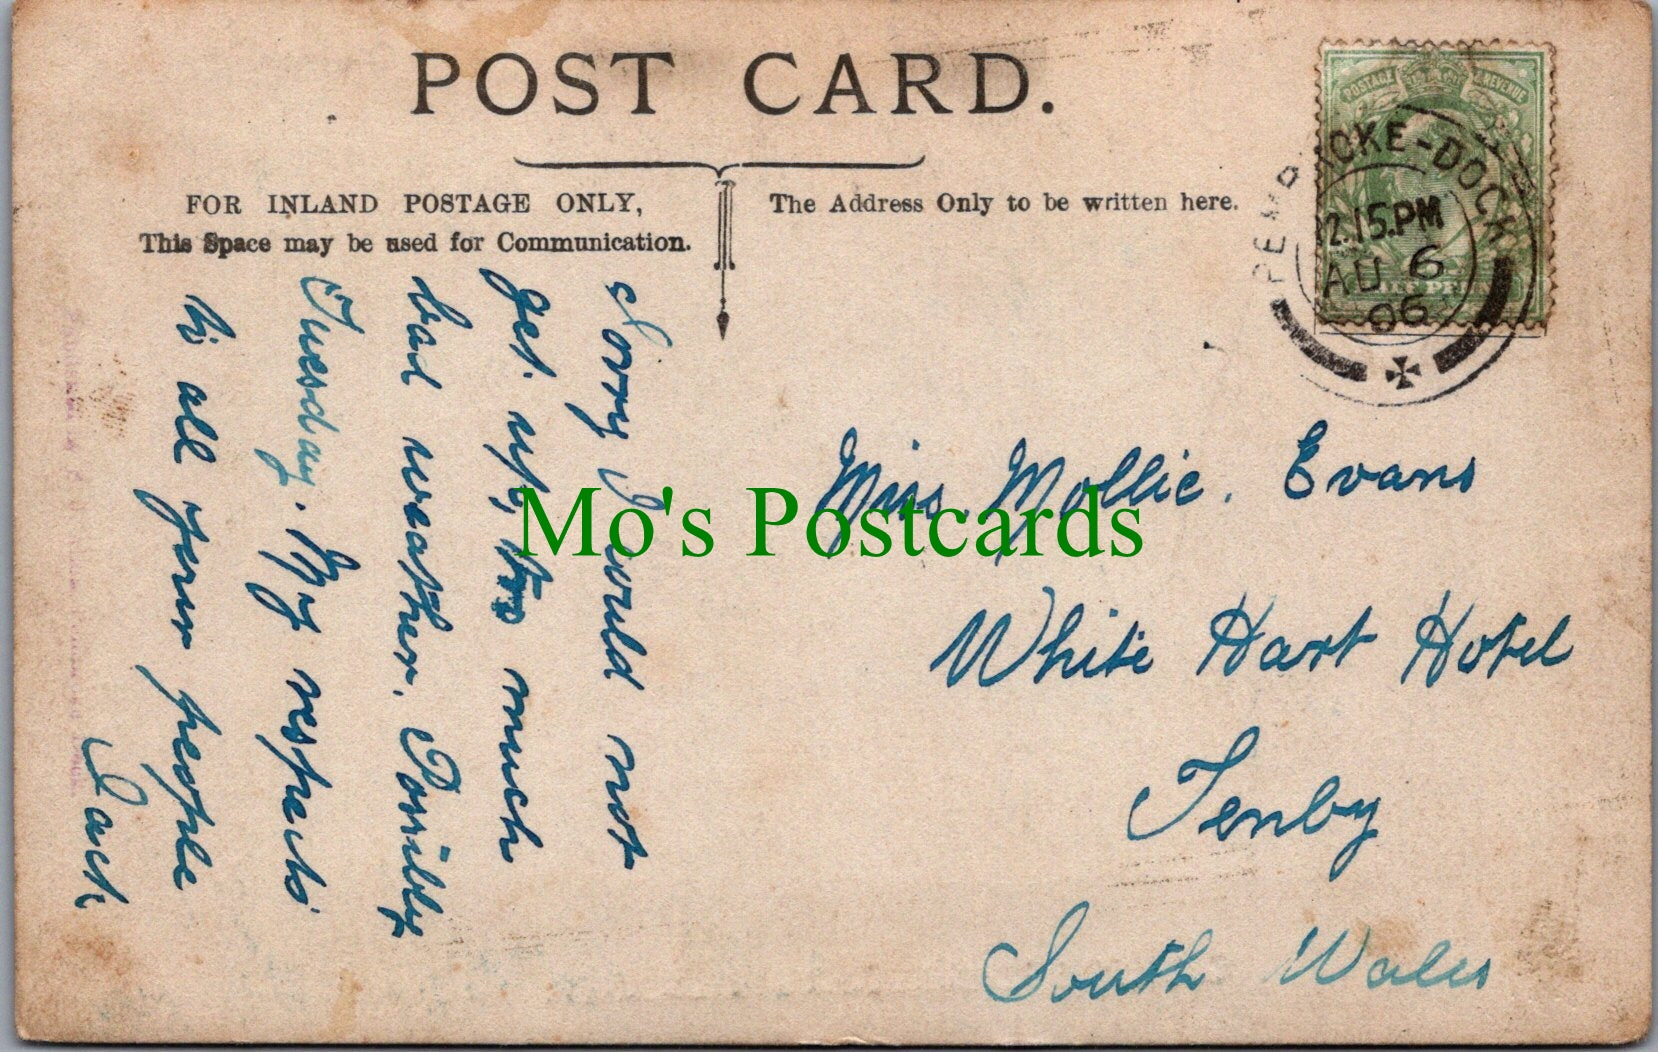 POST CARD.
FOR INLAND POSTAGE ONLY,
This Space may be used for Communication.
The Address Only to be written here.
POSTAGE & REVENUE
HALF PENNY
PEMBROKE-DOCK
2.15.PM
AU 6
06
Sorry I could not
get up, too much
bad weather. Possibly
Tuesday. My respects
to all your people
Jack
Miss Mollie. Evans
White Hart Hotel
Tenby
South Wales
Mo's Postcards